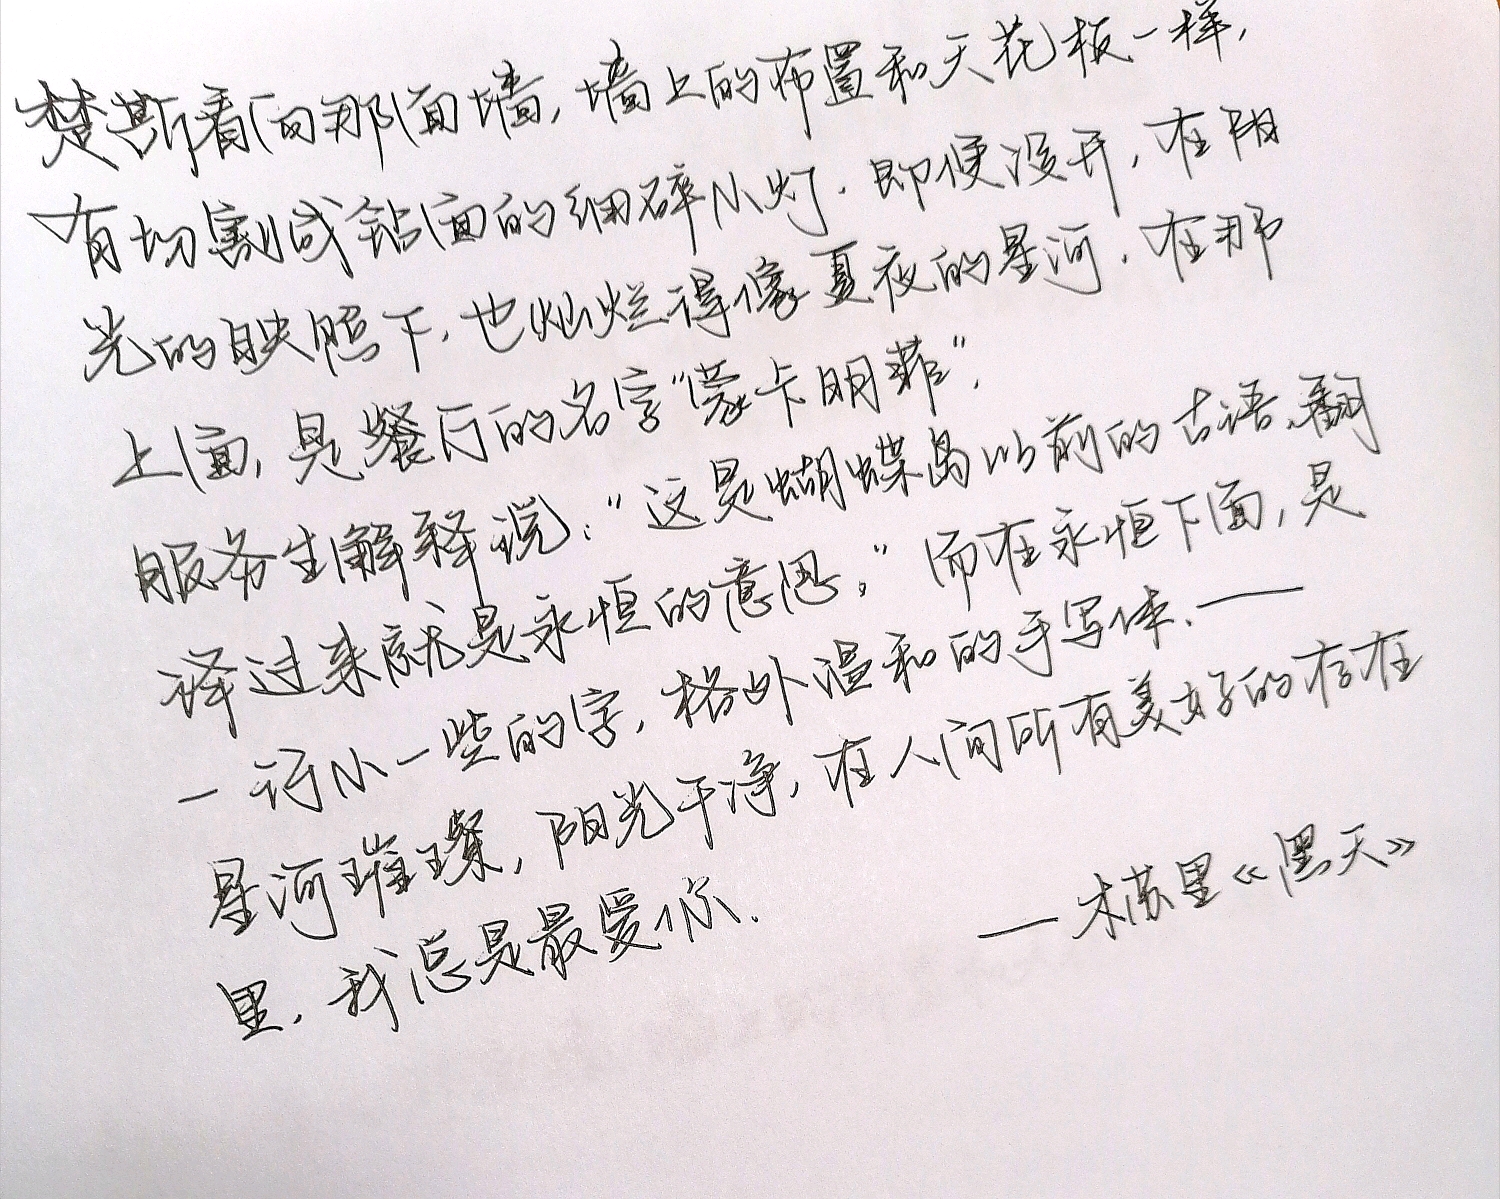 楚斯看向那面墙，墙上的布置和天花板一样，
有切割成钻面的细碎小灯．即便没开，在阳
光的映照下，也灿烂得像夏夜的星河．在那
上面，是餐厅的名字“蒙卡明菲”．
服务生解释说：“这是蝴蝶岛以前的古语，翻
译过来就是永恒的意思。”而在永恒下面，是
一行小一些的字，格外温和的手写体．——
星河璀璨，阳光干净，在人间所有美好的存在
里．我总是最爱你．
——木苏里《黑天》